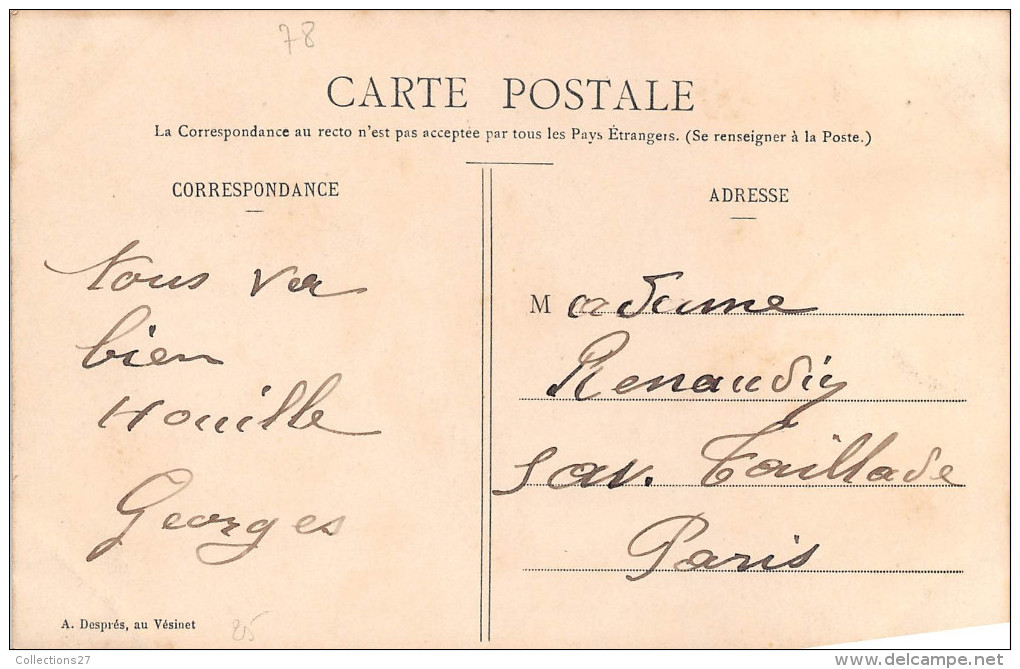 78
CARTE POSTALE
La Correspondance au recto n'est pas acceptée par tous les Pays Étrangers. (Se renseigner à la Poste.)
CORRESPONDANCE
Tous va
bien
Houille
Georges
A. Després, au Vésinet
ADRESSE
Madame
Renaudin
5 av. Taillade
Paris
Collections27
www.delcampe.net